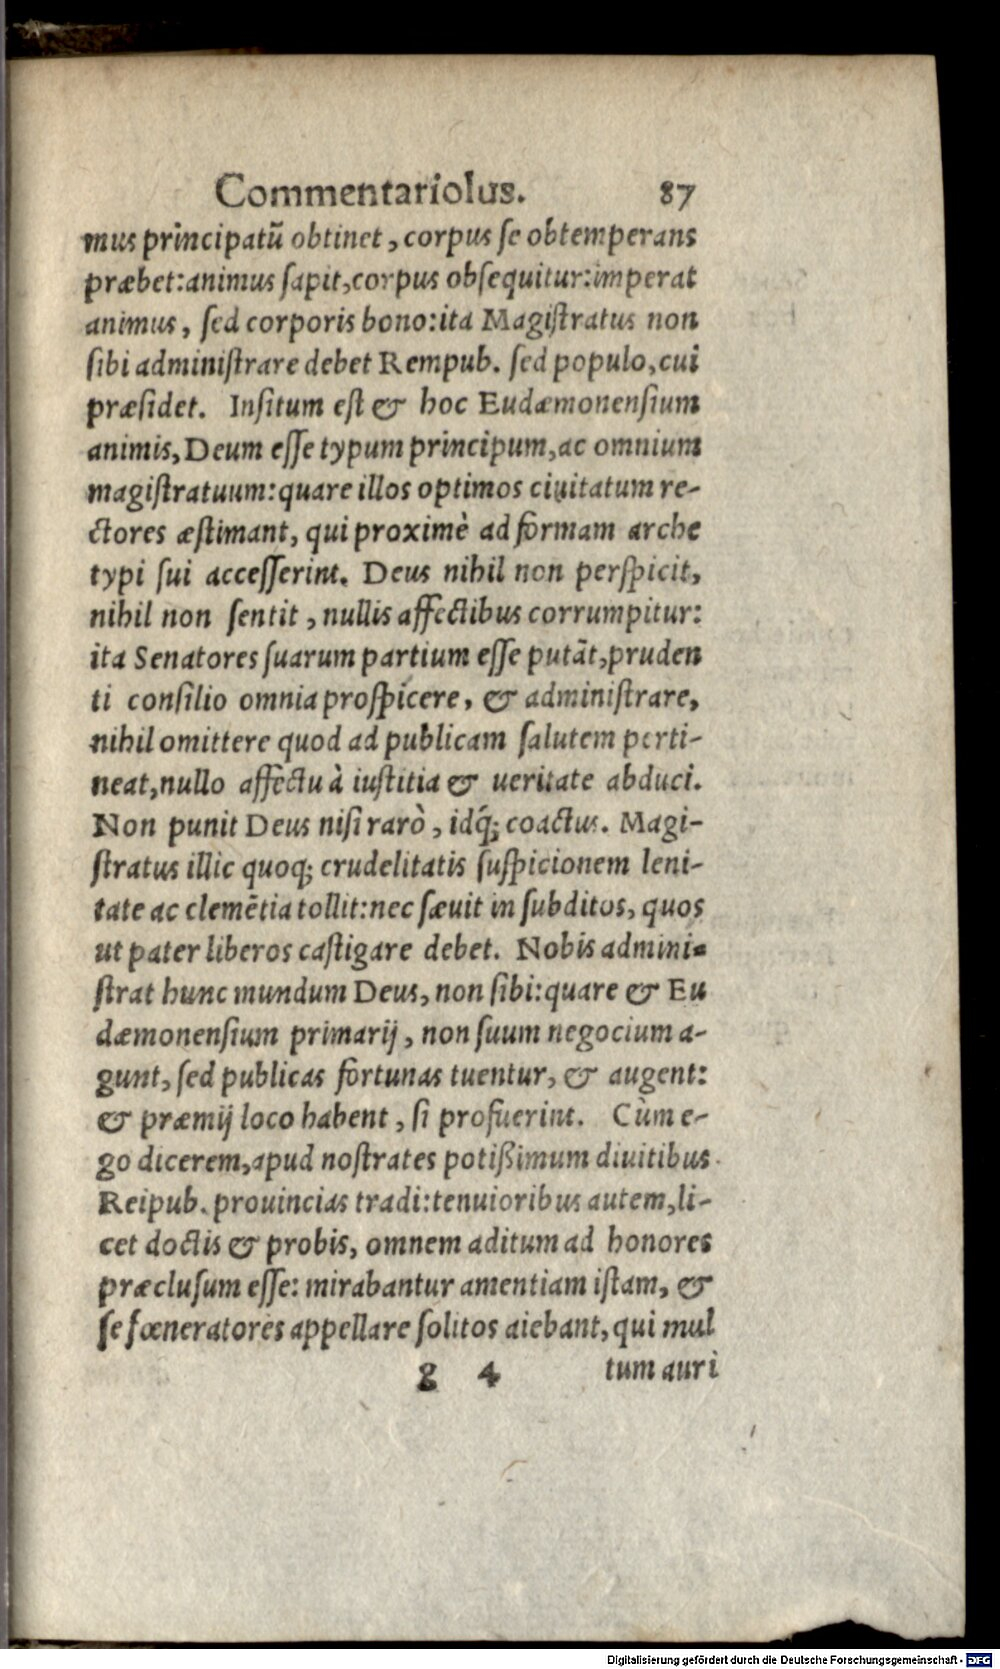 Commentariolus. 87
mus principatū obtinet, corpus se obtemperans
præbet: animus sapit, corpus obsequitur: imperat
animus, sed corporis bono: ita Magistratus non
sibi administrare debet Rempub. sed populo, cui
præsidet. Insitum est & hoc Eudæmonensium
animis, Deum esse typum principum, ac omnium
magistratuum: quare illos optimos ciuitatum re-
ctores æstimant, qui proximè ad formam arche
typi sui accesserint. Deus nihil non perspicit,
nihil non sentit, nullis affectibus corrumpitur:
ita Senatores suarum partium esse putāt, pruden
ti consilio omnia prospicere, & administrare,
nihil omittere quod ad publicam salutem perti-
neat, nullo affectu à iustitia & ueritate abduci.
Non punit Deus nisi rarò, idq́; coactus. Magi-
stratus illic quoq; crudelitatis suspicionem leni-
tate ac clemētia tollit: nec sæuit in subditos, quos
ut pater liberos castigare debet. Nobis admini-
strat hunc mundum Deus, non sibi: quare & Eu
dæmonensium primarij, non suum negocium a-
gunt, sed publicas fortunas tuentur, & augent:
& præmij loco habent, si profuerint. Cùm e-
go dicerem, apud nostrates potißimum diuitibus
Reipub. prouincias tradi: tenuioribus autem, li-
cet doctis & probis, omnem aditum ad honores
præclusum esse: mirabantur amentiam istam, &
se fœneratores appellare solitos aiebant, qui mul
g 4 tum auri
Digitalisierung gefördert durch die Deutsche Forschungsgemeinschaft - DFG